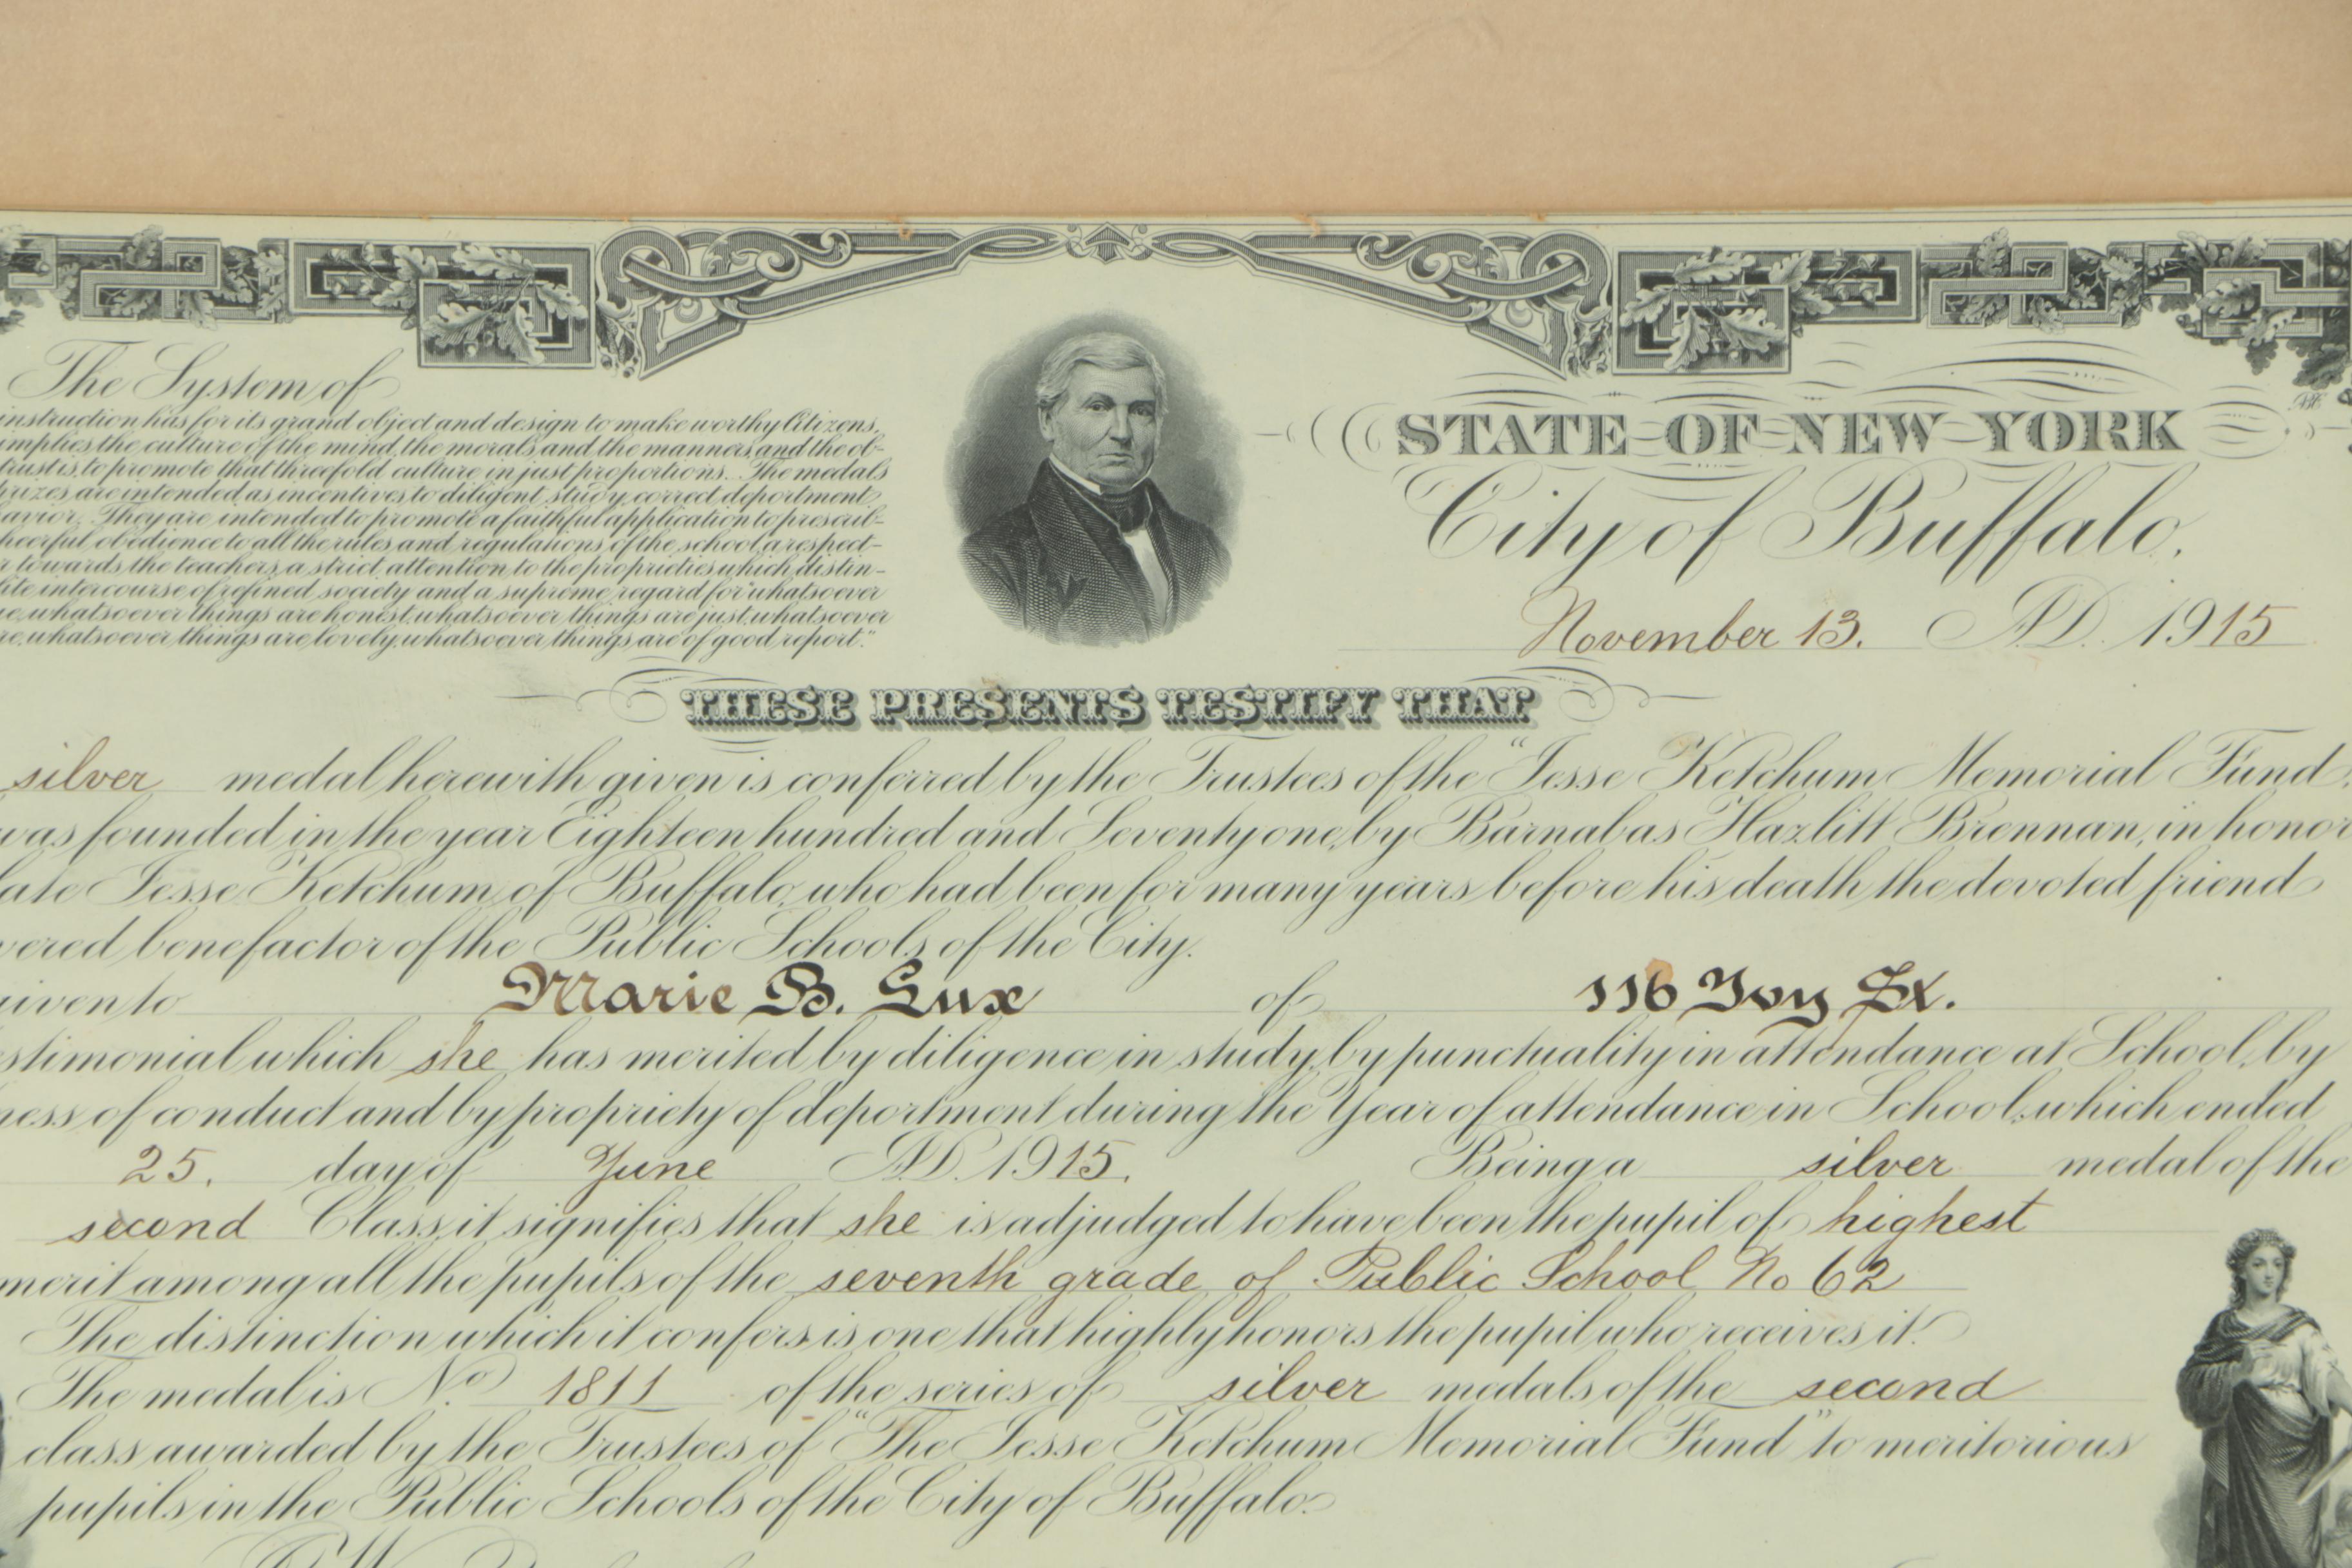 The System of
instruction has for its grand object and design to make worthy Citizens.
implies the culture of the mind, the morals and the manners, and the ob-
trust is, to promote that threefold culture in just proportions. The medals
prizes are intended as incentives to diligent study, correct deportment,
avior. They are intended to promote a faithful application to prescrib-
heerful obedience to all the rules and regulations of the school, a respect-
r towards the teachers, a strict attention to the proprieties which distin-
lite intercourse of refined society and a supreme regard for "whatsoever
ue, whatsoever things are honest, whatsoever things are just, whatsoever
re, whatsoever things are lovely, whatsoever things are of good report."
STATE OF NEW YORK
City of Buffalo.
November 13. A.D. 1915
THESE PRESENTS TESTIFY THAT
silver medal herewith given is conferred by the Trustees of the "Jesse Ketchum Memorial Fund.
was founded in the year Eighteen hundred and Seventy one, by Barnabas Hazlitt Brennan, in honor
late Jesse Ketchum, of Buffalo, who had been for many years before his death the devoted friend
vered benefactor of the Public Schools of the City.
given to Marie B. Lux of 116 Ivy St.
estimonial which she has merited by diligence in study, by punctuality in attendance at School, by
ness of conduct and by propriety of deportment during the Year of attendance in School, which ended
25. day of June A.D. 1915. Being a silver medal of the
second Class, it signifies that she is adjudged to have been the pupil of highest
merit among all the pupils of the seventh grade of Public School No 62
The distinction which it confers is one that highly honors the pupil who receives it.
The medal is No. 1811 of the series of silver medals of the second
class awarded by the Trustees of "The Jesse Ketchum Memorial Fund" to meritorious
pupils in the Public Schools of the City of Buffalo.